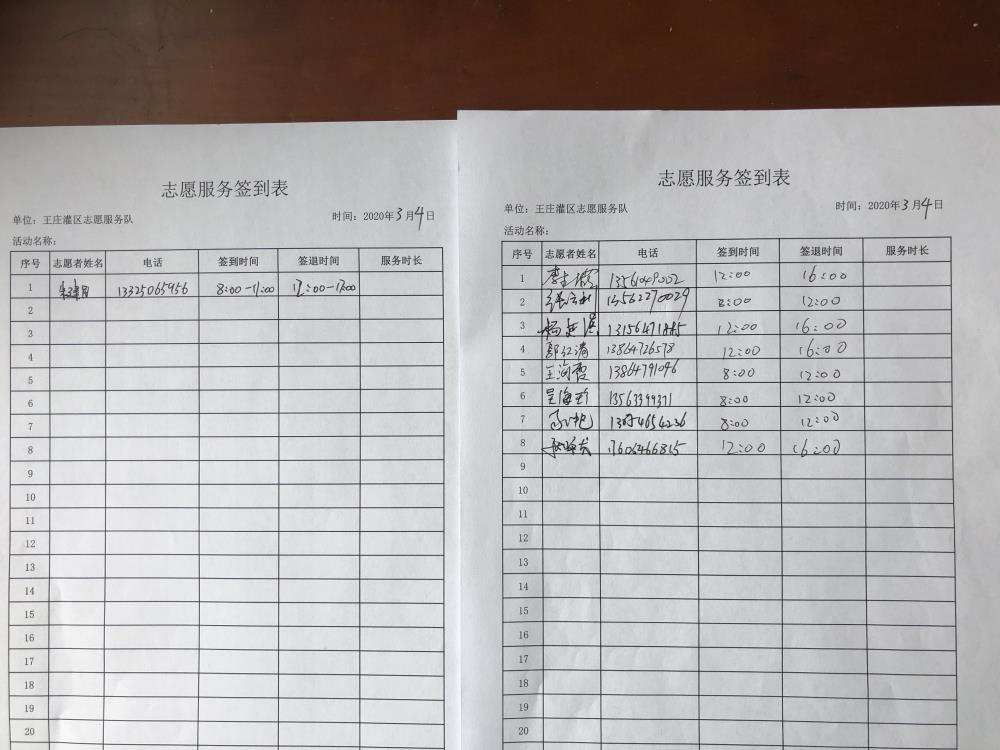 志愿服务签到表
单位：王庄灌区志愿服务队 时间：2020年3月4日
活动名称：
序号 志愿者姓名 电话 签到时间 签退时间 服务时长
1 13325065956 8:00-12:00
2
3
4
5
6
7
8
9
10
11
12
13
14
15
16
17
18
19
20
志愿服务签到表
单位：王庄灌区志愿服务队 时间：2020年3月4日
活动名称：
序号 志愿者姓名 电话 签到时间 签退时间 服务时长
1 12:00 16:00
2 13562270029 8:00 12:00
3 12:00 16:00
4 郭红涛 13864726578 12:00 16:00
5 王海霞 13864791096 8:00 12:00
6 13563399371 8:00 12:00
7 8:00 12:00
8 17606466815 12:00 16:00
9
10
11
12
13
14
15
16
17
18
19
20